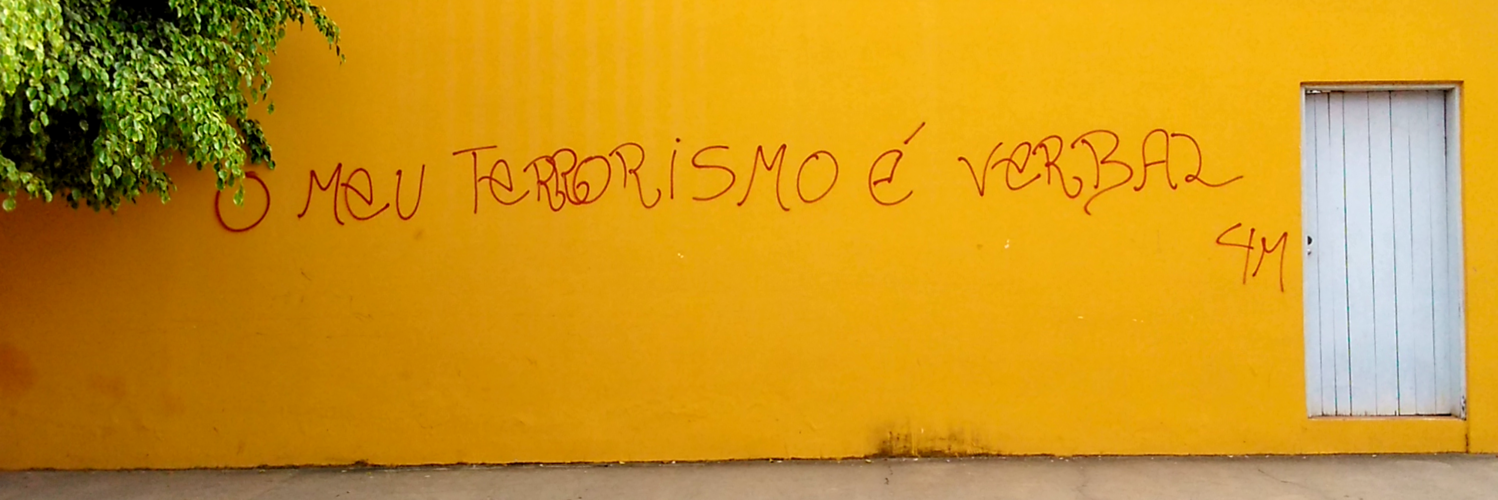 O MEU TERRORISMO É VERBAL
4M